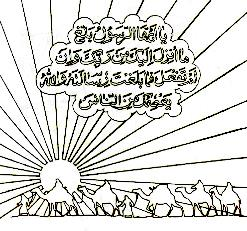 يا ايها الرسول بلغ
ما انزل اليك من ربك وان
لم تفعل فما بلغت رسالته والله
يعصمك من الناس